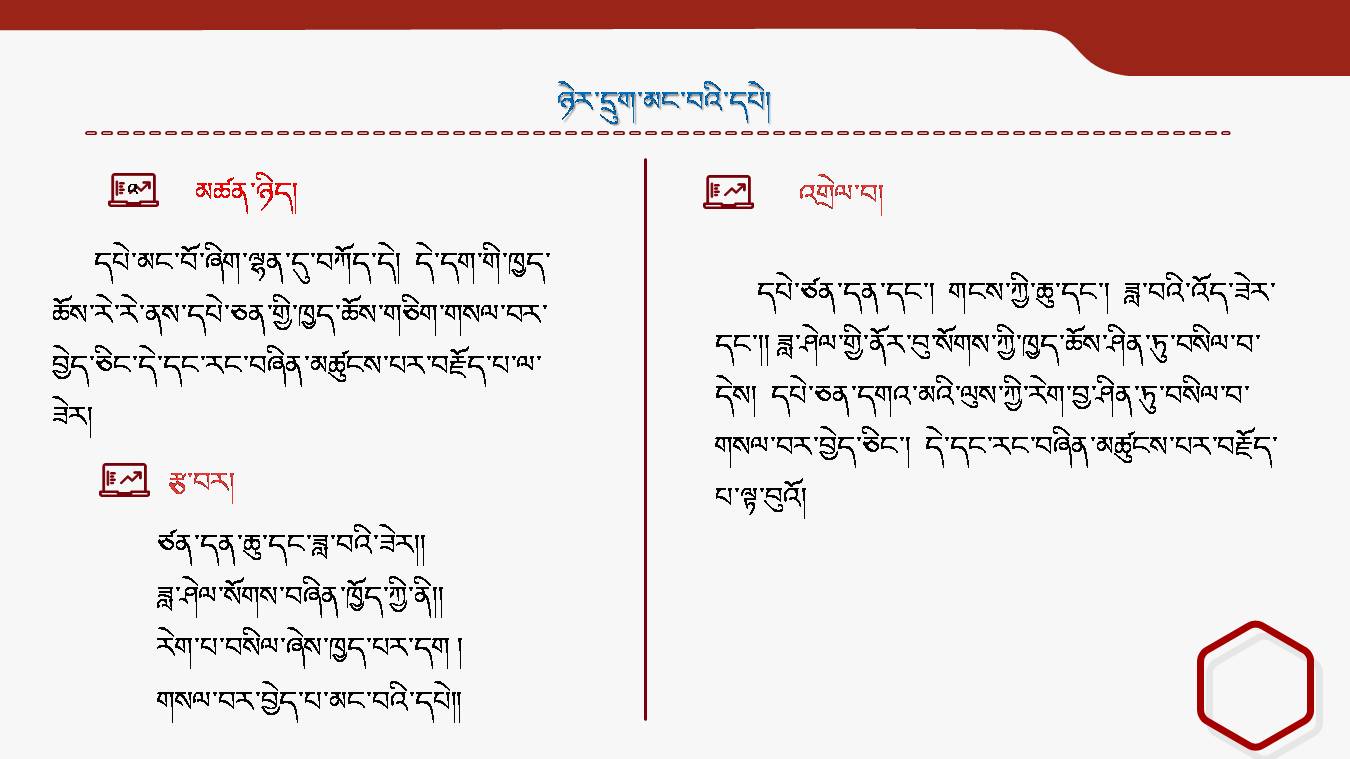 ཉེར་དྲུག་མང་བའི་དཔེ།
མཚན་ཉིད།
དཔེ་མང་བོ་ཞིག་ལྷན་དུ་བཀོད་དེ། དེ་དག་གི་ཁྱད་
ཆོས་རེ་རེ་ནས་དཔེ་ཅན་གྱི་ཁྱད་ཆོས་གཅིག་གསལ་བར་
བྱེད་ཅིང་དེ་དང་རང་བཞིན་མཚུངས་པར་བརྗོད་པ་ལ་
ཟེར།
རྩ་བར།
ཙན་དན་ཆུ་དང་ཟླ་བའི་ཟེར།།
ཟླ་ཤེལ་སོགས་བཞིན་ཁྱོད་ཀྱི་ནི།།
རེག་པ་བསིལ་ཞེས་ཁྱད་པར་དག །
གསལ་བར་བྱེད་པ་མང་བའི་དཔེ།།
འགྲེལ་བ།
དཔེ་ཙན་དན་དང་། གངས་ཀྱི་ཆུ་དང་། ཟླ་བའི་འོད་ཟེར་
དང་།། ཟླ་ཤེལ་གྱི་ནོར་བུ་སོགས་ཀྱི་ཁྱད་ཆོས་ཤིན་ཏུ་བསིལ་བ་
དེས། དཔེ་ཅན་དགའ་མའི་ལུས་ཀྱི་རེག་བྱ་ཤིན་ཏུ་བསིལ་བ་
གསལ་བར་བྱེད་ཅིང་། དེ་དང་རང་བཞིན་མཚུངས་པར་བརྗོད་
པ་ལྟ་བུའོ།